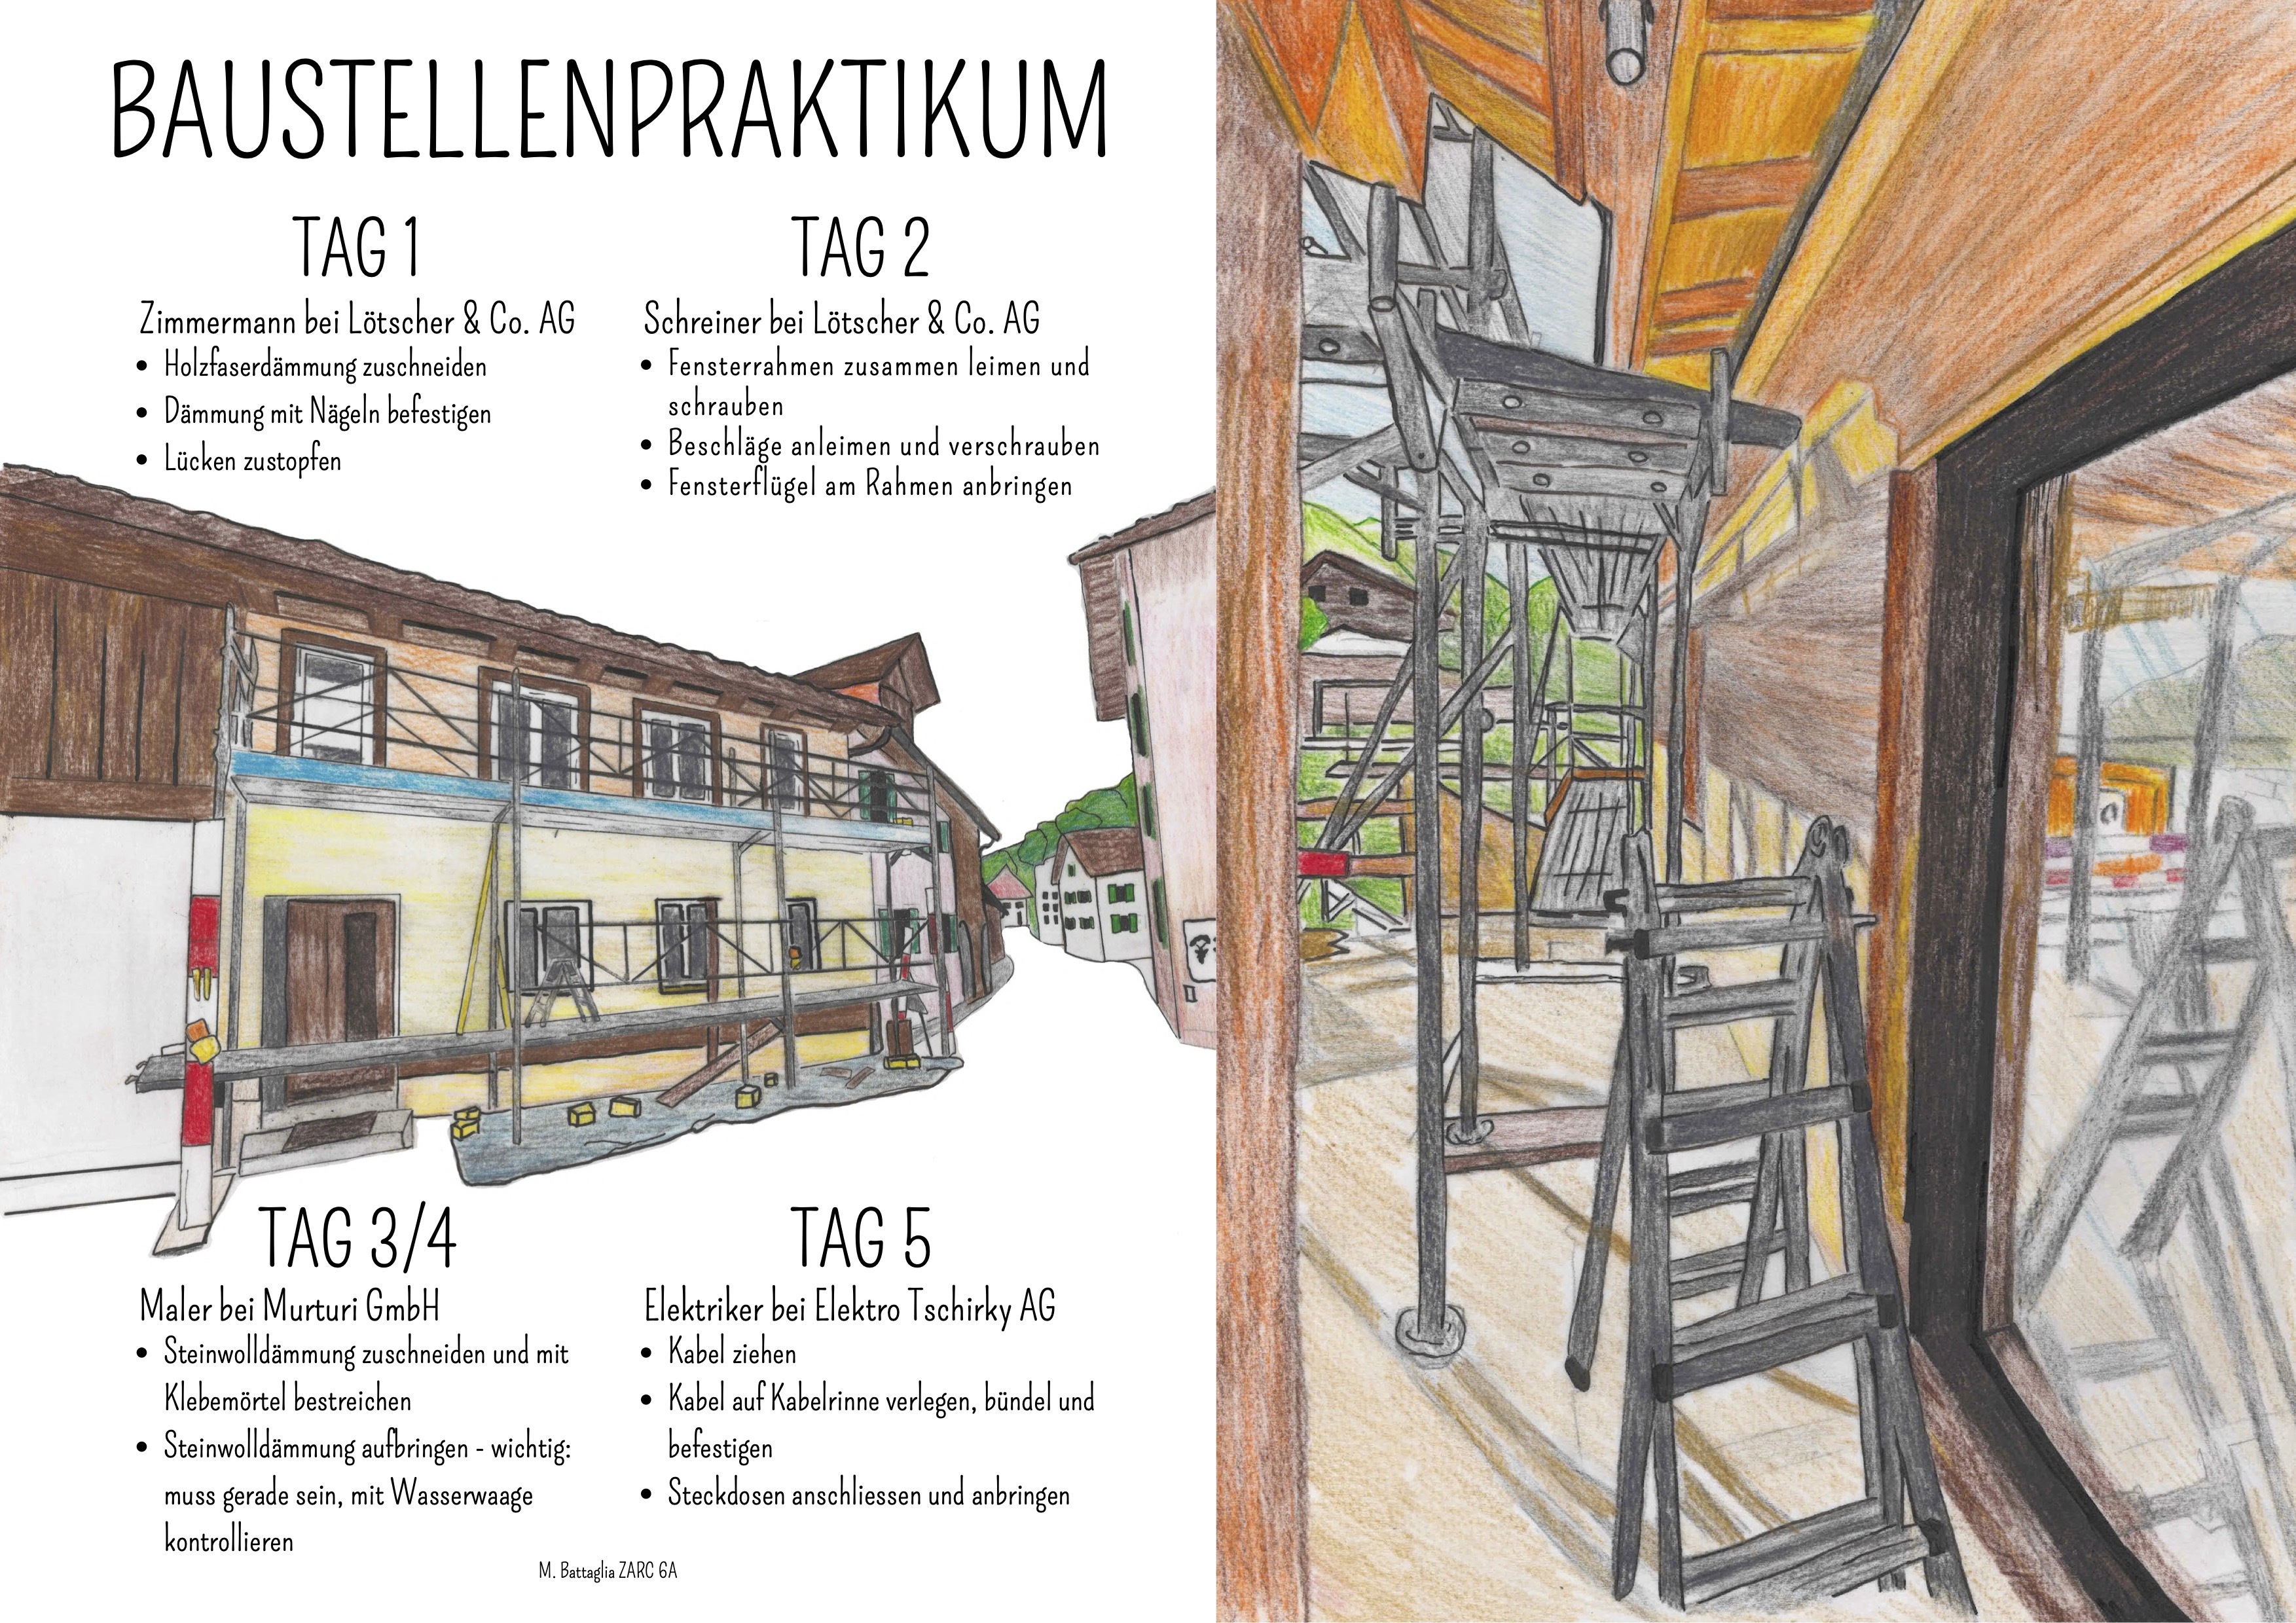 BAUSTELLENPRAKTIKUM
TAG 1
Zimmermann bei Lötscher & Co. AG
• Holzfaserdämmung zuschneiden
• Dämmung mit Nägeln befestigen
• Lücken zustopfen
TAG 2
Schreiner bei Lötscher & Co. AG
• Fensterrahmen zusammen leimen und
schrauben
• Beschläge anleimen und verschrauben
• Fensterflügel am Rahmen anbringen
TAG 3/4
Maler bei Murturi GmbH
• Steinwolldämmung zuschneiden und mit
Klebemörtel bestreichen
• Steinwolldämmung aufbringen - wichtig:
muss gerade sein, mit Wasserwaage
kontrollieren
TAG 5
Elektriker bei Elektro Tschirky AG
• Kabel ziehen
• Kabel auf Kabelrinne verlegen, bündel und
befestigen
• Steckdosen anschliessen und anbringen
M. Battaglia ZARC 6A